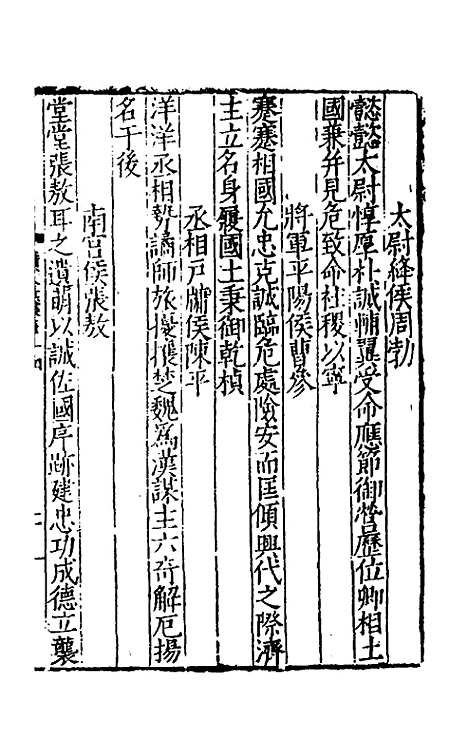 太尉絳侯周勃
懿懿太尉惇厚朴誠輔翼受命應節御營歷位卿相土
國兼并見危致命社稷以寧
將軍平陽侯曹參
蹇蹇相國允忠克誠臨危處險安而匡傾興代之際濟
主立名身履國土秉御乾楨
丞相戶牖侯陳平
洋洋丞相勢譎師旅擾攘楚魏爲漢謀主六奇解厄揚
名于後
南宮侯張敖
堂堂張敖耳之遺萌以誠佐國序跡建忠功成德立襲